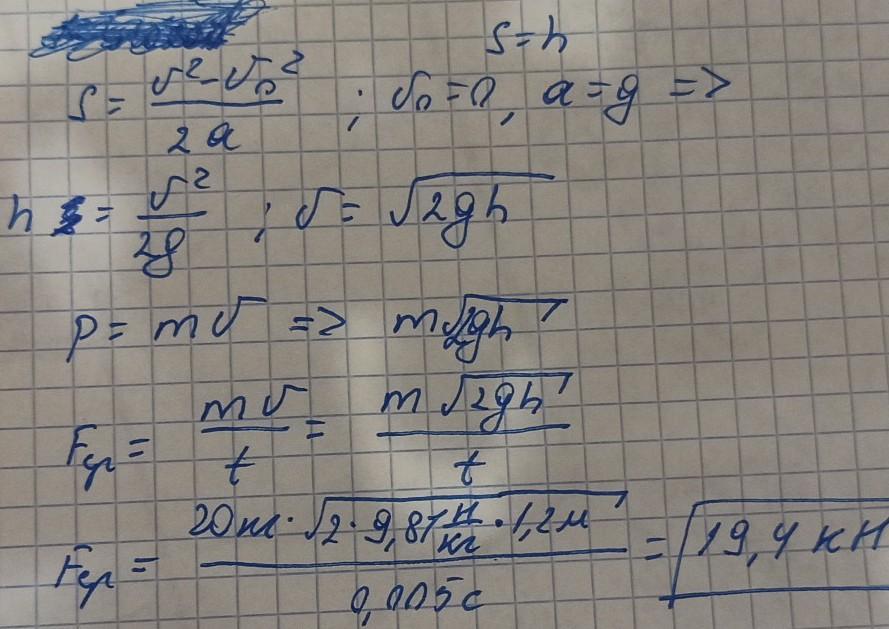 S = h
S = (v² - v₀²) / 2a ; v₀ = 0, a = g =>
h = v² / 2g ; v = √(2gh)
p = mv => m√(2gh)
Fср = mv / t = m√(2gh) / t
Fср = 20кг · √(2 · 9,81 Н/кг · 1,2м) / 0,005с = 19,4 кН